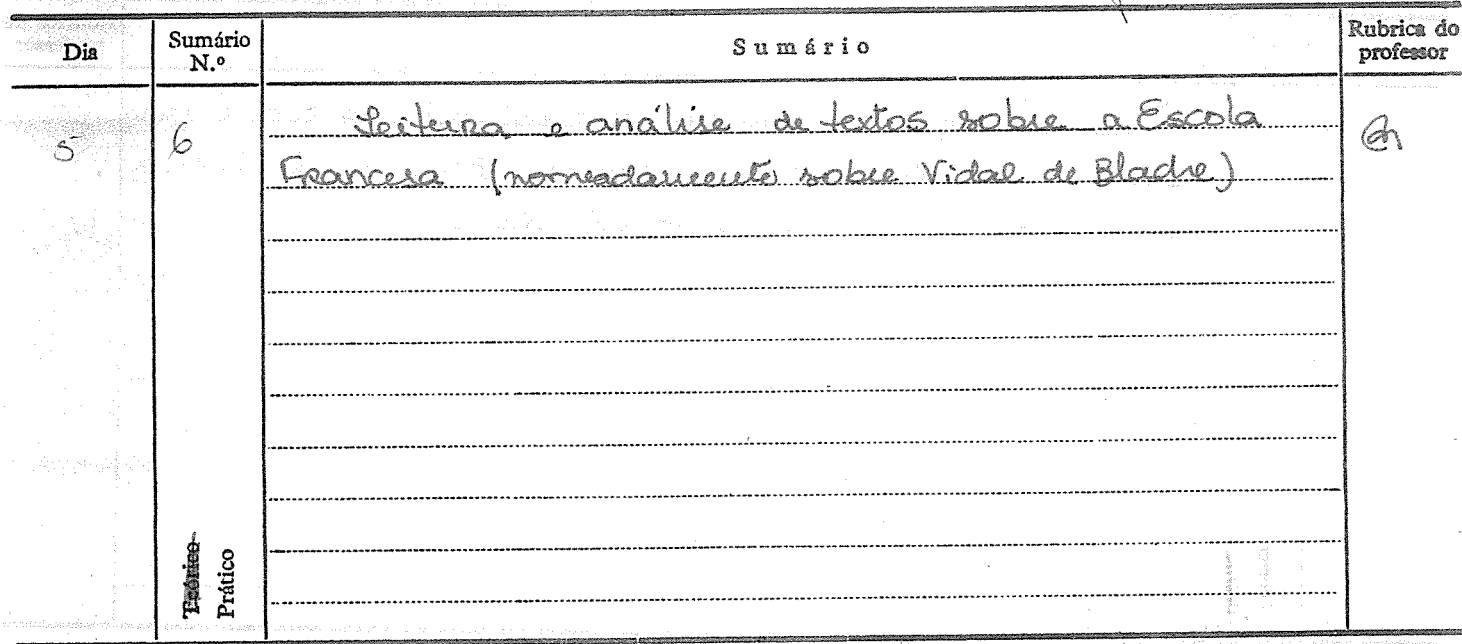 Dia
Sumário N.º
Sumário
Rubrica do professor
5
6
Leitura e análise de textos sobre a Escola
Francesa (nomeadamente sobre Vidal de Blache)
Teórico
Prático